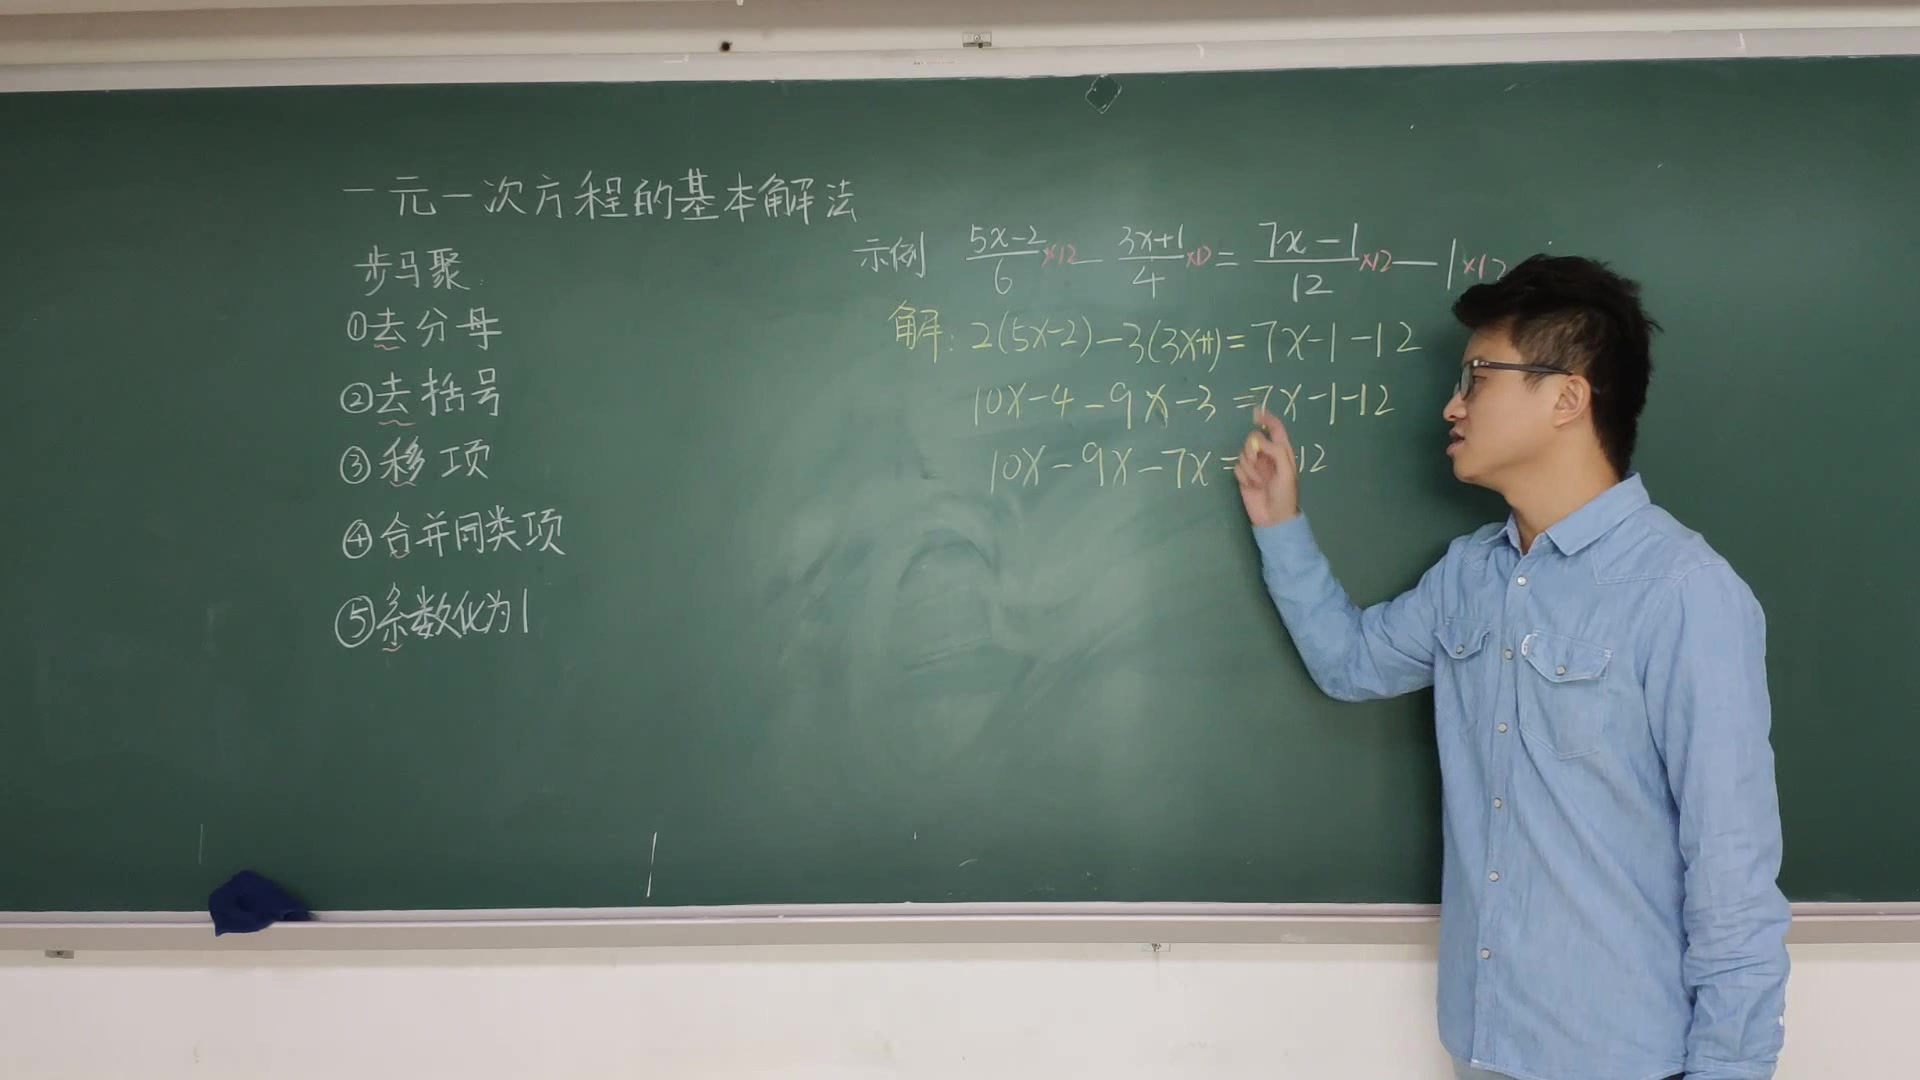 一元一次方程的基本解法
步马聚:
①去分母
②去括号
③移项
④合并同类项
⑤系数化为1
示例 (5x-2)/6 ×12 - (3x+1)/4 ×12 = (7x-1)/12 ×12 - 1 ×12
解: 2(5x-2)-3(3x+1)=7x-1-12
10x-4-9x-3=7x-1-12
10x-9x-7x= 12